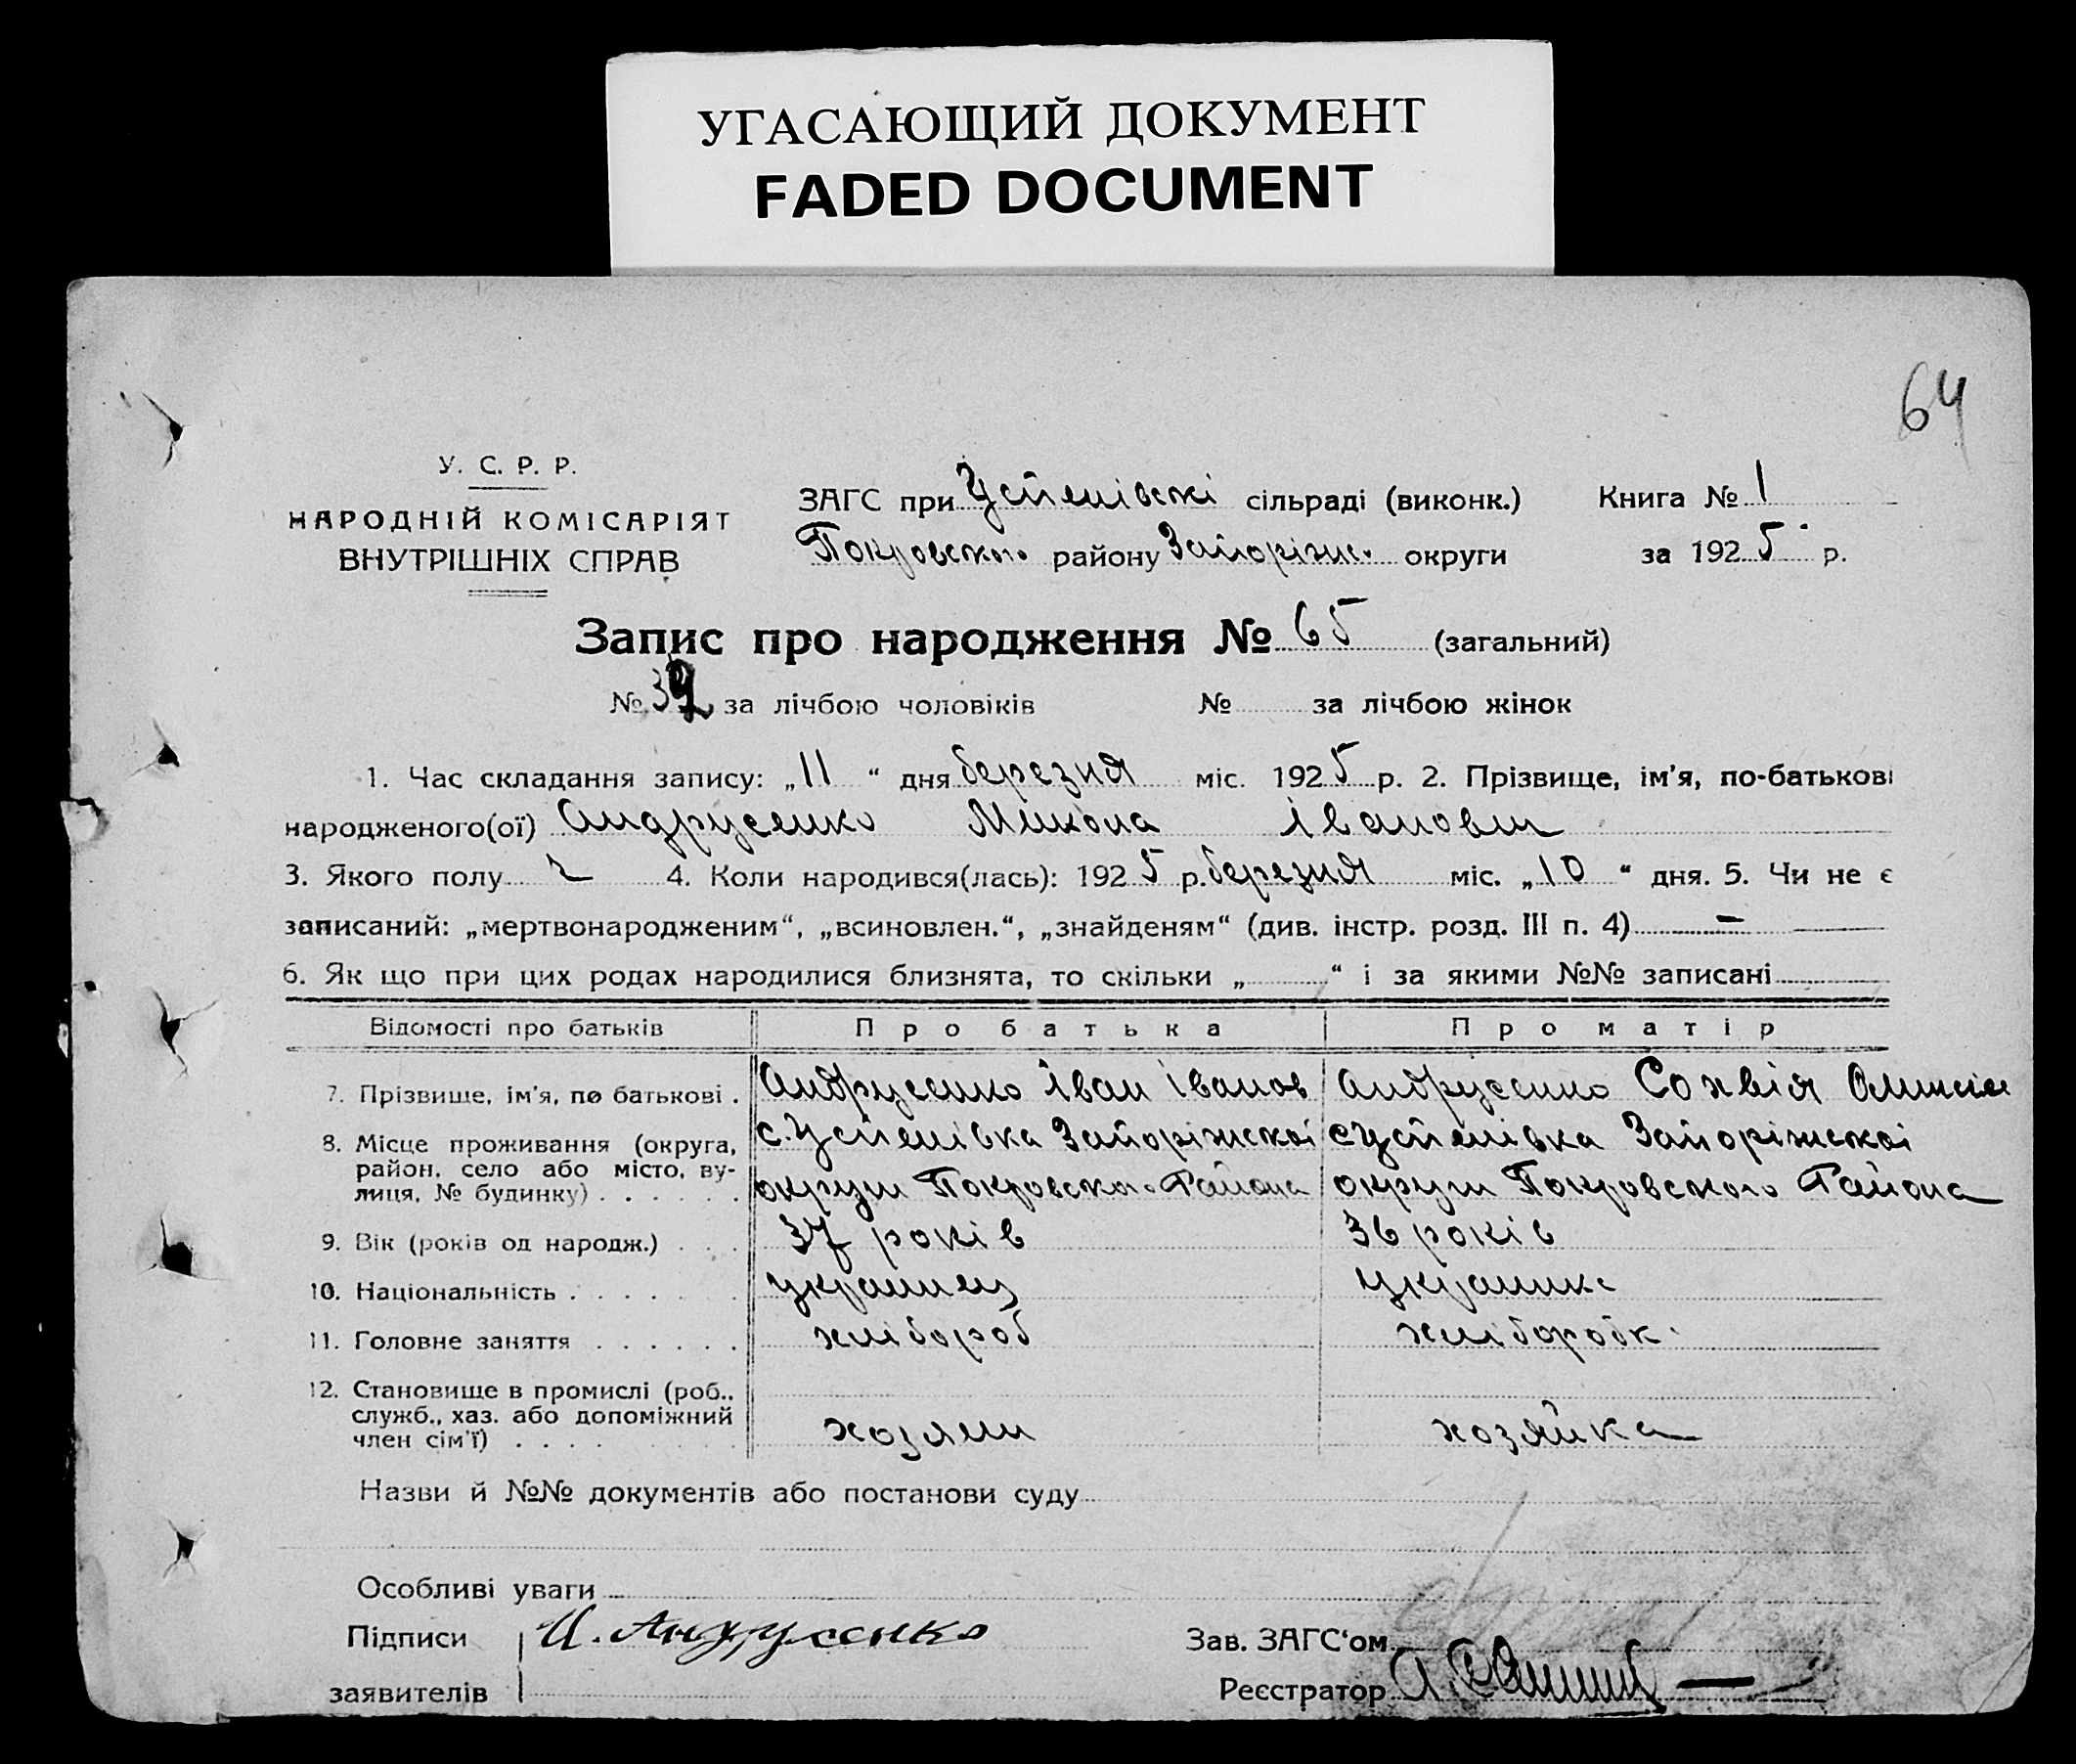 УГАСАЮЩИЙ ДОКУМЕНТ
FADED DOCUMENT
64
У. С. Р. Р.
НАРОДНІЙ КОМІСАРІЯТ
ВНУТРІШНІХ СПРАВ
ЗАГС при Успенівскі сільраді (виконк.) Книга № 1
Покровского району Запоріжс. округи за 1925 р.
Запис про народження № 65 (загальний)
№ 39 за лічбою чоловіків № за лічбою жінок
1. Час складання запису: „11“ дня березня міс. 1925 р. 2. Прізвище, ім'я, по-батькові
народженого(ої) Андрусенко Микола Іванович
3. Якого полу ч 4. Коли народився(лась): 1925 р. березня міс. „10“ дня. 5. Чи не є
записаний: „мертвонародженим“, „всиновлен.“, „знайденям“ (див. інстр. розд. III п. 4) —
6. Як що при цих родах народилися близнята, то скільки „ “ і за якими №№ записані
Відомості про батьків Про батька Про матір
7. Прізвище, ім'я, по батькові . Андрусенко Іван Іванов Андрусенко Сохвія
8. Місце проживання (округа, район, село або місто, вулиця, № будинку) . . . . . . с. Успенівка Запоріжскоі с Успенівка Запоріжскоі
округи Покровского Района округи Покровского Района
9. Вік (років од народж.) . . . 37 років 36 років
10. Національність . . . . . . . украинец украинка
11. Головне заняття . . . . . . хлібороб хліборобк.
12. Становище в промислі (роб., служб., хаз. або допоміжний член сім'ї) . . . . хозяин хозяйка
Назви й №№ документів або постанови суду
Особливі уваги
Підписи И. Андрусенко Зав. ЗАГС'ом
заявителів Реєстратор